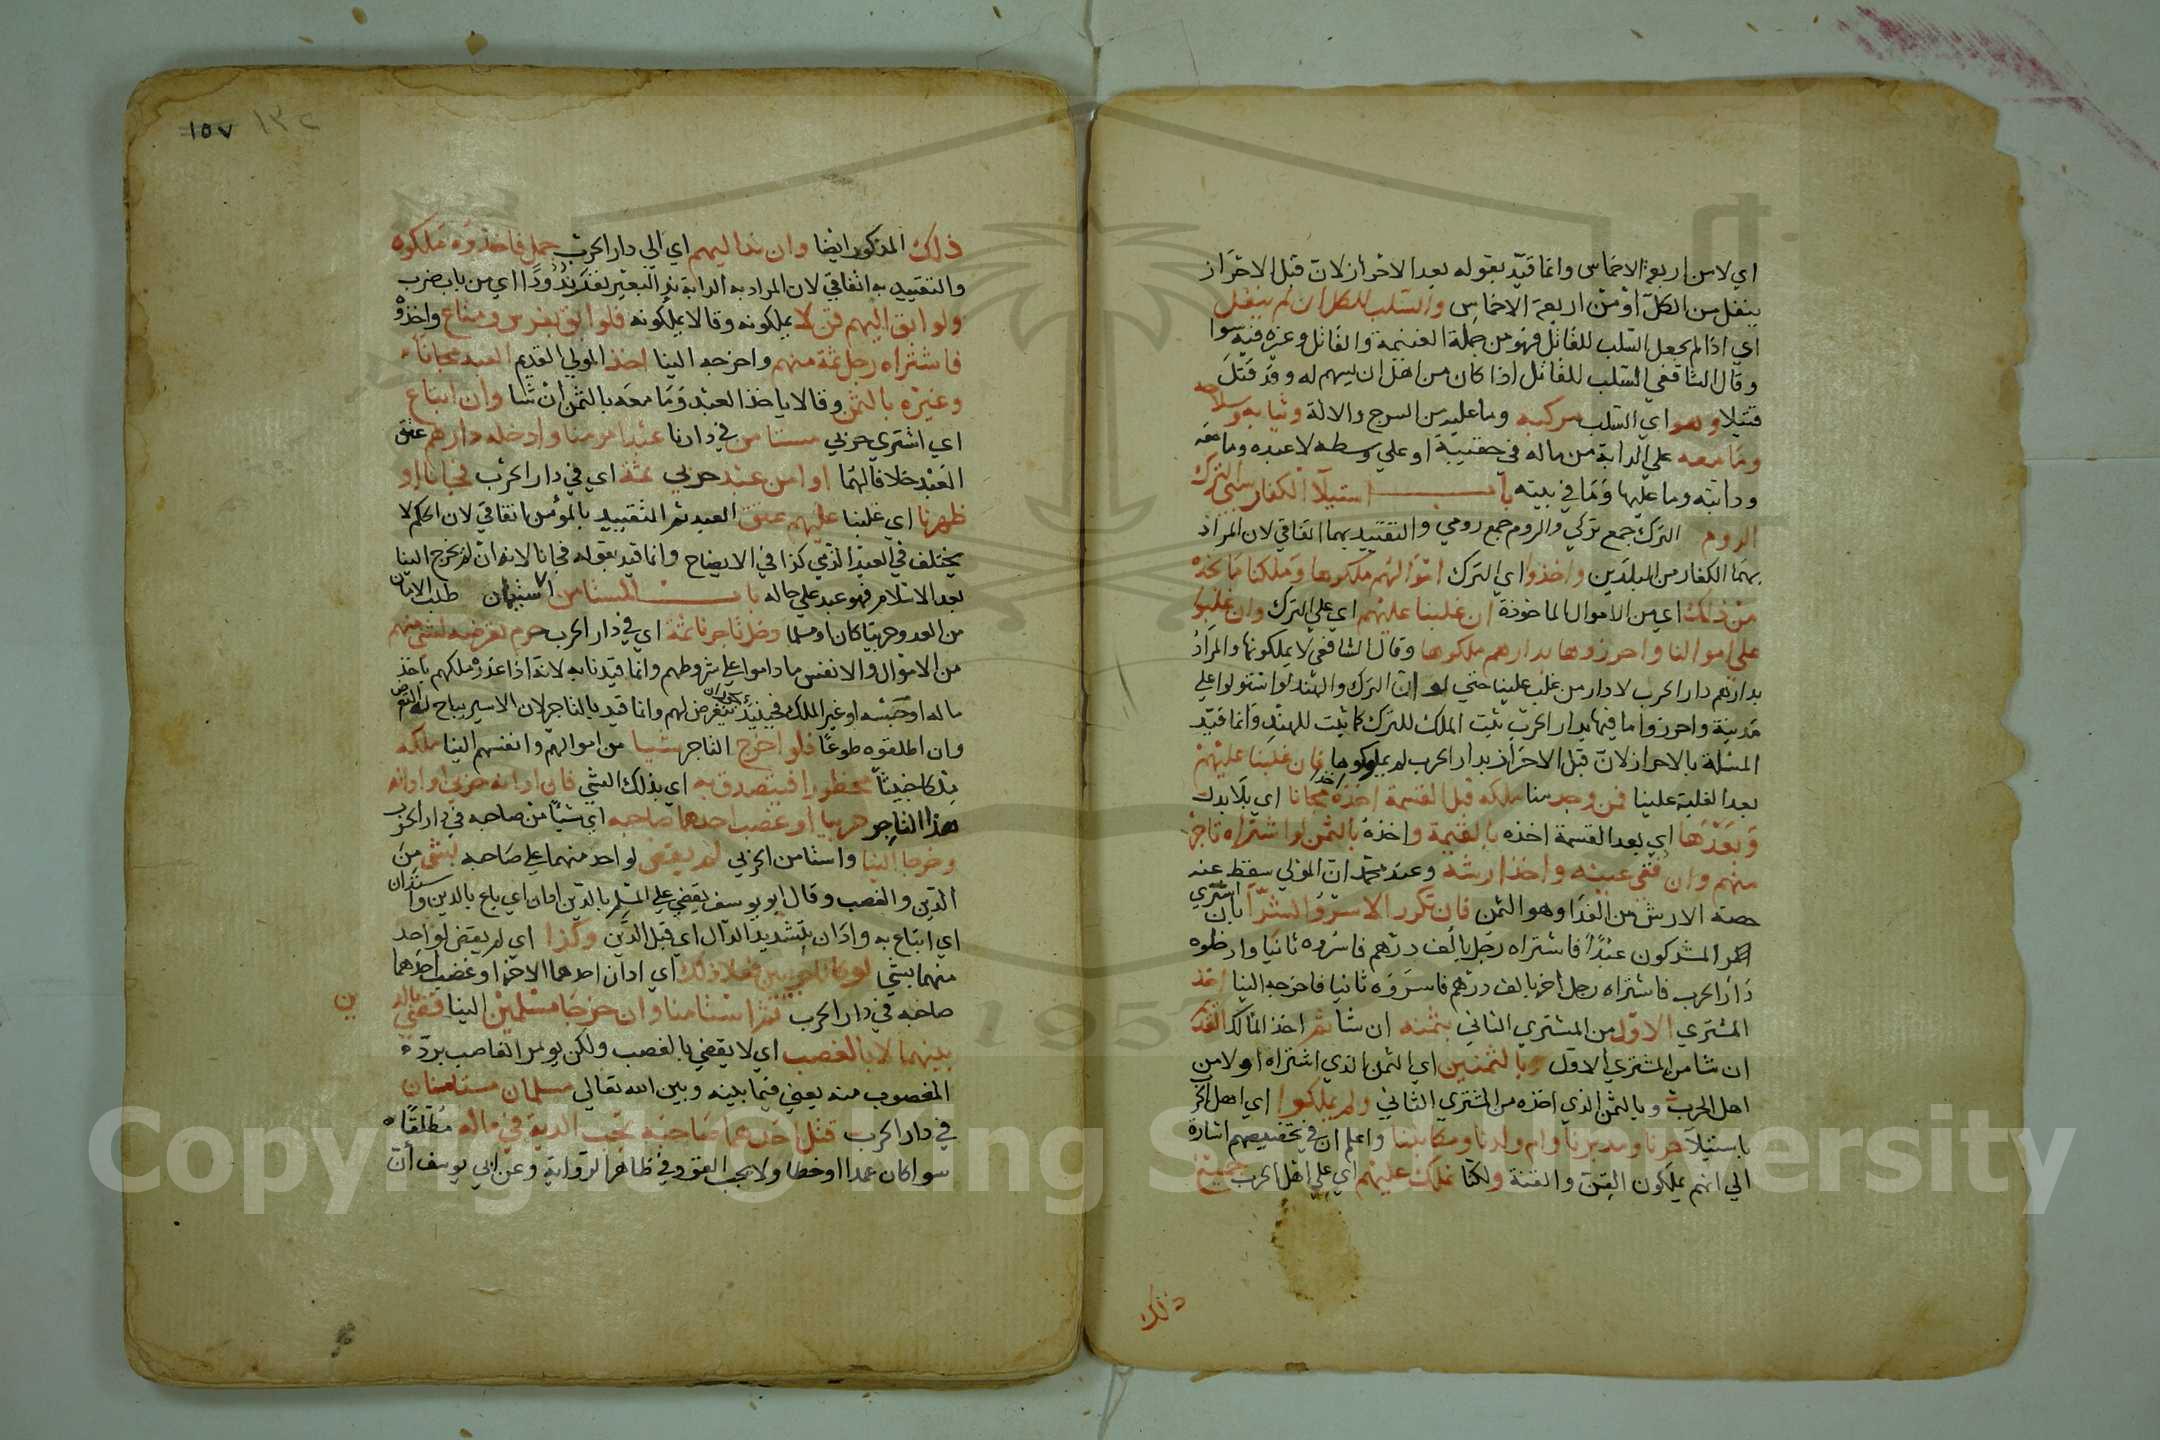 اي لا من اربعة الاخماس وانما قيد بقوله بعد الاحراز لان قبل الاحراز
ينفل من الكل او من اربعة الاخماس والسلب للكل ان لم ينفل
اي اذا لم يجعل السلب للقاتل فهو من جملة الغنيمة والقاتل وغيره فيه سوا
وقال الشافعي السلب للقاتل اذا كان من اهل ان يسهم له وقد قتل
قتيلا وهو اي السلب مركبه وما عليه من السرج والالة وثيابه وسلاحه
وما معه على الدابة من ماله في حقيبة او على وسطه لا عبده وما معه
ودابته وما عليها وما في بيته باب استيلآ الكفار سبى الترك
الروم الترك جمع تركي والروم جمع رومي والتقييد بهما اتفاقي لان المراد
بهما الكفار من البلدين واخذوا اي الترك اموالهم ملكوها وملكنا ما نجده
من ذلك اي من الاموال الماخوذة ان غلبنا عليهم اي على الترك وان غلبوا
على اموالنا واحرزوها بدارهم ملكوها وقال الشافعي لا يملكونها والمراد
بدارهم دار الحرب لا دار من غلب علينا حتى لو ان الترك والهند لو استولوا على
مدينة واحرزوا ما فيها بدار الحرب يثبت الملك للترك كما يثبت للهند وانما قيد
المسئلة بالاحراز لان قبل الاحراز بدار الحرب لم يملكوها فان غلبنا عليهم
بعد الغلبة علينا فمن وجد منا ملكه قبل القسمة اخذه مجانا اي بلا بدل
وبعدها اي بعد القسمة اخذه بالقيمة واخذه بالثمن لو اشتراه تاجر
منهم وان فقئ عينه واخذ ارشه وعند محمد ان المولي سقط عنه
حصة الارش من الفدا وهو الثمن فان تكرر الاسر والشرآ بان اشتري
المشركون عبدًا فاشتراه رجل بالف درهم فاسروه ثانيا وادخلوه
دار الحرب فاشتراه رجل اخر بالف درهم فاسروه ثانيا فاخرجه الينا اخذ
المشتري الاول من المشتري الثاني بثمنه ان شا ثم اخذ المالك القديم
ان شا من المشتري الاول بالثمنين اي الثمن الذي اشتراه اولا من
اهل الحرب وبالثمن الذي اخذه من المشتري الثاني ولم يملكوا اي اهل الحرب
باستيلآ حرنا ومدبرنا وام ولدنا ومكاتبنا واعلم ان في تخصيصهم اشارة
الى انهم يملكون القن والقنة ولكنا نملك عليهم اي على اهل الحرب جميع
ذلك
١٥٧ ١٣٢
ذلك المذكور ايضا وان ند اليهم اي الي دار الحرب جمل فاخذوه ملكوه
والتقييد به اتفاقي لان المراد به الدابة ند البعير نفر ندودًا اي من باب ضرب
ولو ابق اليهم قن لا يملكونه وقالا يملكونه فلو ابق بفرس ومتاع واخذوه
فاشتراه رجل ثمة منهم واخرجه الينا اخذ المولي القديم العبد مجانا
وغيره بالثمن وقالا ياخذ العبد وما معه بالثمن ان شا وان ابتاع
اي اشتري حربي مستامن في دارنا عبدا مومنا وادخله دارهم عتق
العبد خلافا لهما او امن عبد حربي ثمة اي في دار الحرب فجانا او
ظهرنا اي غلبنا عليهم عتق العبد ثم التقييد بالمؤمن اتفاقي لان الحكم لا
يختلف في العبد الذمي كذا في الايضاح وانما قيد بقوله فجانا لانه ان لم يخرج الينا
بعد الاسلام فهو عبد على حاله باب المستامن الاستئمان طلب الامان
من العدو حربيا كان او مسلما دخل تاجرنا ثمة اي في دار الحرب حرم تعرضه لشئ منهم
من الاموال والانفس ما داموا على شروطهم وانما قيدنا به لانه اذا غدر ملكهم باخذ
ماله او حبسه او غير الملك فحينئذ يتعرض لهم وانما قيد بالتاجر لان الاسير يباح له التعرض
وان اطلقوه طوعًا فلو اخرج التاجر شيا من اموالهم وانفسهم الينا ملكه
ملكا خبيثًا محظورا فيتصدق به اي بذلك الشي فان ادانه حربي او ادانه
هذا التاجر حربيا او غصب احدهما صاحبه اي شيًا من صاحبه في دار الحرب
وخرجا الينا واستامن الحربي لم يقض لواحد منهما على صاحبه بشئ من
الدين والغصب وقال ابو يوسف يقضي على المسلم بالدين ادان اي باع بالدين واستدان
اي ابتاع به وادان بتشديد الدال اي قبل الدين وكذا اي لم يقض لواحد
منهما بشي لو كانا حربيين فعلا ذلك اي ادان احدهما الاخر او غصب احدهما
صاحبه في دار الحرب ثم استامنا وان خرجا مسلمين الينا قضي بالدين
بينهما لا بالغصب اي لا يقضي بالغصب ولكن يومر الغاصب برده
المغصوب منه يعني فيما بينه وبين الله تعالي مسلمان مستامنان
في دار الحرب قتل احدهما صاحبه تجب الدية في ماله مطلقًا
سوا كان عمدا او خطا ولا يجب القود في ظاهر الرواية وعن ابي يوسف ان
Copyright © King Saud University
1957